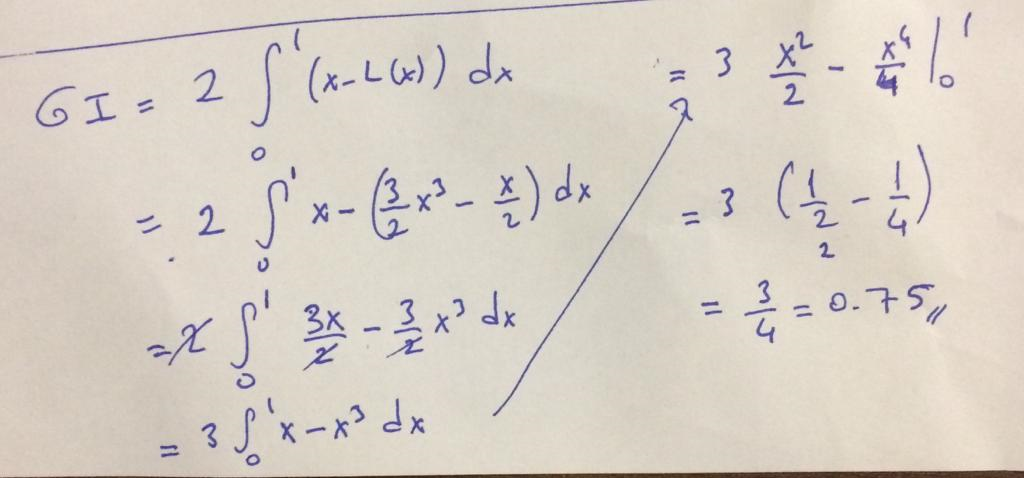 GI = 2 ∫₀¹ (x - L(x)) dx
= 2 ∫₀¹ x - (3/2 x³ - x/2) dx
= 2 ∫₀¹ 3x/2 - 3/2 x³ dx
= 3 ∫₀¹ x - x³ dx
= 3 x²/2 - x⁴/4 |₀¹
= 3 (1/2 - 1/4)
2
= 3/4 = 0.75